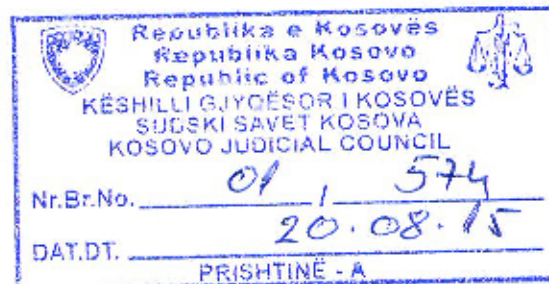 Republika e Kosovës
Republika Kosovo
Republic of Kosovo
KËSHILLI GJYQËSOR I KOSOVËS
SUDSKI SAVET KOSOVA
KOSOVO JUDICIAL COUNCIL
Nr.Br.No. 01 / 574
DAT.DT. 20.08.15
PRISHTINË - A